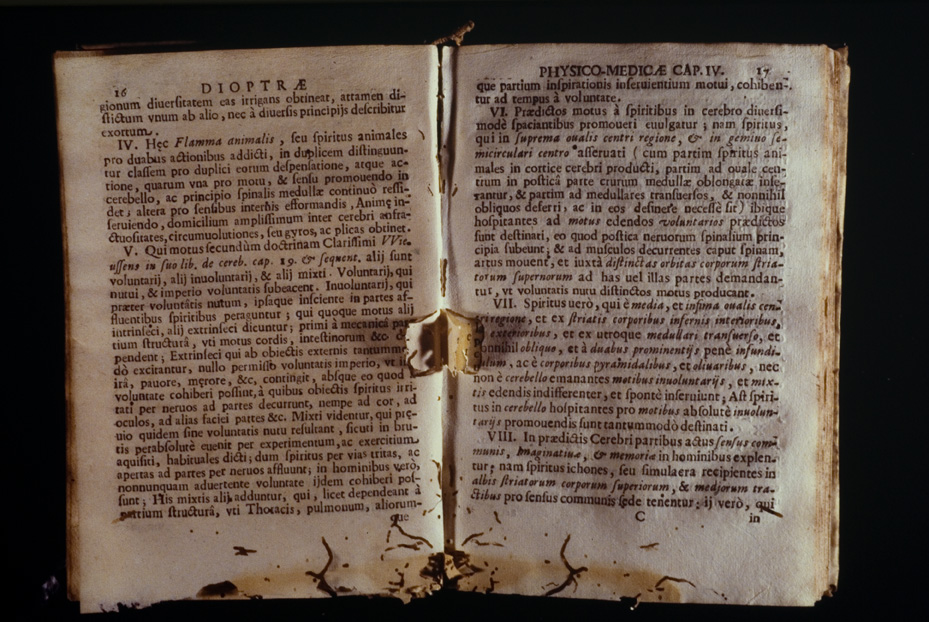 16 DIOPTRÆ
gionum diuersitatem eas irrigans obtineat, attamen di-
stictum vnum ab alio, nec à diuersis principijs describitur
exortum.
IV. Hęc Flamma animalis, seu spiritus animales
pro duabus actionibus addicti, in duplicem distinguun-
tur classem pro duplici eorum despensatione, atque ac-
tione, quarum vna pro motu, & sensu promouendo in
cerebello, ac principio spinalis medullæ continuò ressi-
det, altera pro sensibus internis efformandis, Animę in-
seruiendo, domicilium amplissimum inter cerebri anfra-
ctuositates, circumuolutiones, seu gyros, ac plicas obtinet.
V. Qui motus secundùm doctrinam Clarissimi VVit.
ussens in suo lib. de cereb. cap. 19. & sequent. alij sunt
voluntarij, alij inuoluntarij, & alij mixti. Voluntarij, qui
nutui, & imperio voluntatis subeacent. Inuoluntarij, qui
præter voluntatis nutum, ipsaque insciente in partes af-
fluentibus spiritibus peraguntur; qui quoque motus alij
intrinseci, alij extrinseci dicuntur; primi à mecanica par-
tium structurâ, vti motus cordis, intestinorum &c. de
pendent; Extrinseci qui ab obiectis externis tantummo-
dò excitantur, nullo permisso voluntatis imperio, vt in
irâ, pauore, męrore, &c, contingit, absque eo quod à
voluntate cohiberi possint, à quibus obiectis spiritus irri-
tati per neruos ad partes decurrunt, nempe ad cor, ad
oculos, ad alias faciei partes &c. Mixti videntur, qui prę-
uio quidem sine voluntatis nutu resultant, sicuti in bru-
tis perabsolutè euenit per experimentum, ac exercitium
aquisiti, habituales dicti; dum spiritus per vias tritas, ac
apertas ad partes per neruos affluunt; in hominibus verò,
nonnunquam aduertente voluntate ijdem cohiberi pos-
sunt; His mixtis alij adduntur, qui, licet dependeant à
partium structurâ, vti Thoracis, pulmonum, aliorum-
que
PHYSICO-MEDICÆ CAP. IV. 17
que partium inspirationis inseruientium motui, cohiben-
tur ad tempus à voluntate.
VI. Prædictos motus à spiritibus in cerebro diuersi-
modè spaciantibus promoueri euulgatur; nam spiritus,
qui in suprema oualis centri regione, & in gemino se-
micirculari centro asseruati (cum partim spiritus ani-
males in cortice cerebri producti, partim ad ouale cen-
trum in posticâ parte crurum medullæ oblongatæ inse-
rantur, & partim ad medullares transuersos, & nonnihil
obliquos deserti, ac in eos desinere necessè sit) ibique
hospitantes ad motus edendos voluntarios prædictos
sunt destinati, eo quod postica neruorum spinalium prin-
cipia subeunt; & ad musculos decurrentes caput spinam,
artus mouent, et iuxtà distinctas orbitas corporum stria-
torum supernorum ad has uel illas partes demandan-
tur, vt voluntatis nutu distinctos motus producant.
VII. Spiritus uerò, qui è media, et infima oualis cen-
tri regione, et ex striatis corporibus infernis interioribus,
exterioribus, et ex utroque medullari transuerso, et
nonnihil obliquo, et à duabus prominentijs penè infundi-
bulum, ac è corporibus pyramidalibus, et oliuaribus, nec
non è cerebello emanantes motibus inuoluntarijs, et mix-
tis edendis indifferenter, et spontè inseruiunt; Ast spiri-
tus in cerebello hospitantes pro motibus absolutè inuolun-
tarijs promouendis sunt tantummodò destinati.
VIII. In prædictis Cerebri partibus actus sensus com-
munis, Imaginatiuæ, & memoriæ in hominibus explen-
tur; nam spiritus ichones, seu simulacra recipientes in
albis striatorum corporum superiorum, & mediorum tra-
ctibus pro sensus communis sede tenentur; ij verò, qui
C in